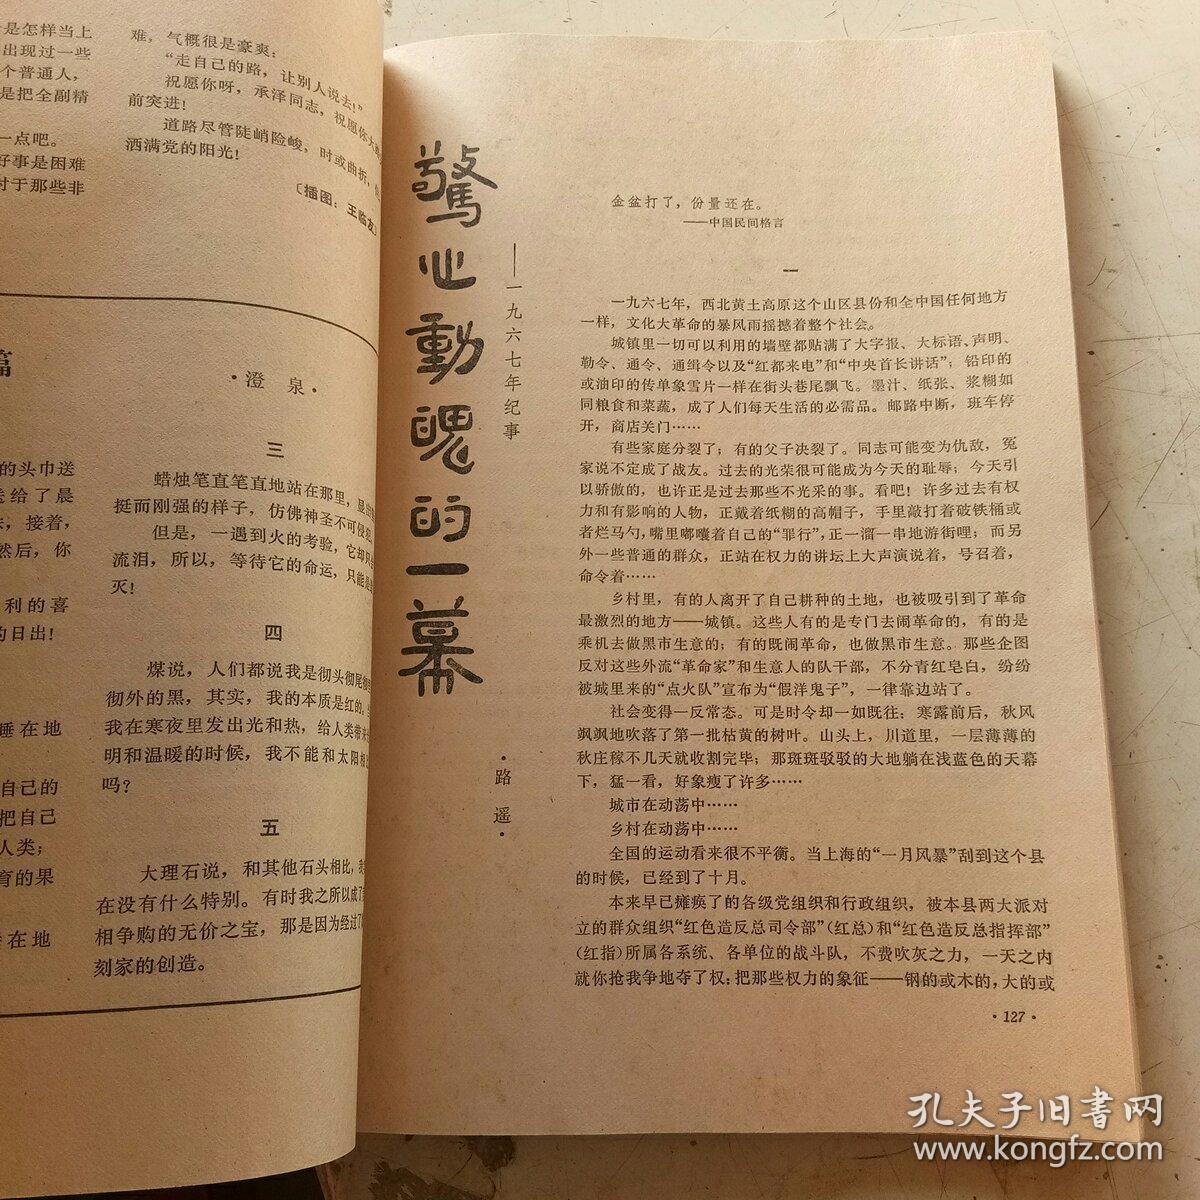 是怎样当上
出现过一些
个普通人，
是把全副精
一点吧。
好事是困难
对于那些非
难，气概很是豪爽：
“走自己的路，让别人说去！”
祝愿你呀，承泽同志，祝愿你大
前突进！
道路尽管陡峭险峻，时或曲折，
洒满党的阳光！
〔插图：王临友〕
篇
·澄泉·
的头巾送
送给了晨
接着，
然后，你
利的喜
的日出！
睡在地
自己的
把自己
人类；
育的果
在地
三
蜡烛笔直笔直地站在那里，显出
挺而刚强的样子，仿佛神圣不可侵犯
但是，一遇到火的考验，它却只
流泪，所以，等待它的命运，只能是
灭！
四
煤说，人们都说我是彻头彻尾
彻外的黑，其实，我的本质是红的。
我在寒夜里发出光和热，给人类带来
明和温暖的时候，我不能和太阳
吗？
五
大理石说，和其他石头相比，我
在没有什么特别。有时我之所以成了
相争购的无价之宝，那是因为经过了
刻家的创造。
驚心動魄的一幕
——一九六七年纪事
·路遥·
金盆打了，份量还在。
——中国民间格言
一
一九六七年，西北黄土高原这个山区县份和全中国任何地方
一样，文化大革命的暴风雨摇撼着整个社会。
城镇里一切可以利用的墙壁都贴满了大字报、大标语、声明、
勒令、通令、通缉令以及“红都来电”和“中央首长讲话”；铅印的
或油印的传单象雪片一样在街头巷尾飘飞。墨汁、纸张、浆糊如
同粮食和菜蔬，成了人们每天生活的必需品。邮路中断，班车停
开，商店关门……
有些家庭分裂了；有的父子决裂了。同志可能变为仇敌，冤
家说不定成了战友。过去的光荣很可能成为今天的耻辱；今天引
以骄傲的，也许正是过去那些不光采的事。看吧！许多过去有权
力和有影响的人物，正戴着纸糊的高帽子，手里敲打着破铁桶或
者烂马勺，嘴里嘟囔着自己的“罪行”，正一溜一串地游街哩；而另
外一些普通的群众，正站在权力的讲坛上大声演说着，号召着，
命令着……
乡村里，有的人离开了自己耕种的土地，也被吸引到了革命
最激烈的地方——城镇。这些人有的是专门去闹革命的，有的是
乘机去做黑市生意的；有的既闹革命，也做黑市生意。那些企图
反对这些外流“革命家”和生意人的队干部，不分青红皂白，纷纷
被城里来的“点火队”宣布为“假洋鬼子”，一律靠边站了。
社会变得一反常态。可是时令却一如既往：寒露前后，秋风
飒飒地吹落了第一批枯黄的树叶。山头上，川道里，一层薄薄的
秋庄稼不几天就收割完毕；那斑斑驳驳的大地躺在浅蓝色的天幕
下，猛一看，好象瘦了许多……
城市在动荡中……
乡村在动荡中……
全国的运动看来很不平衡。当上海的“一月风暴”刮到这个县
的时候，已经到了十月。
本来早已瘫痪了的各级党组织和行政组织，被本县两大派对
立的群众组织“红色造反总司令部”（红总）和“红色造反总指挥部”
（红指）所属各系统、各单位的战斗队，不费吹灰之力，一天之内
就你抢我争地夺了权；把那些权力的象征——钢的或木的，大的或
·127·
孔夫子旧书网
www.kongfz.com